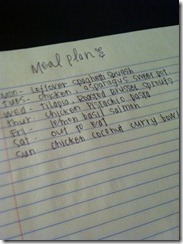 Meal Plan
mon - leftover spaghetti squash
tues - chicken, asparagus, sweet pot
wed - tilapia, roasted brussel sprouts
thur - chicken pistachio pasta
Fri - lemon basil salmon
sat - out to eat
sun - chicken coconut curry bowl